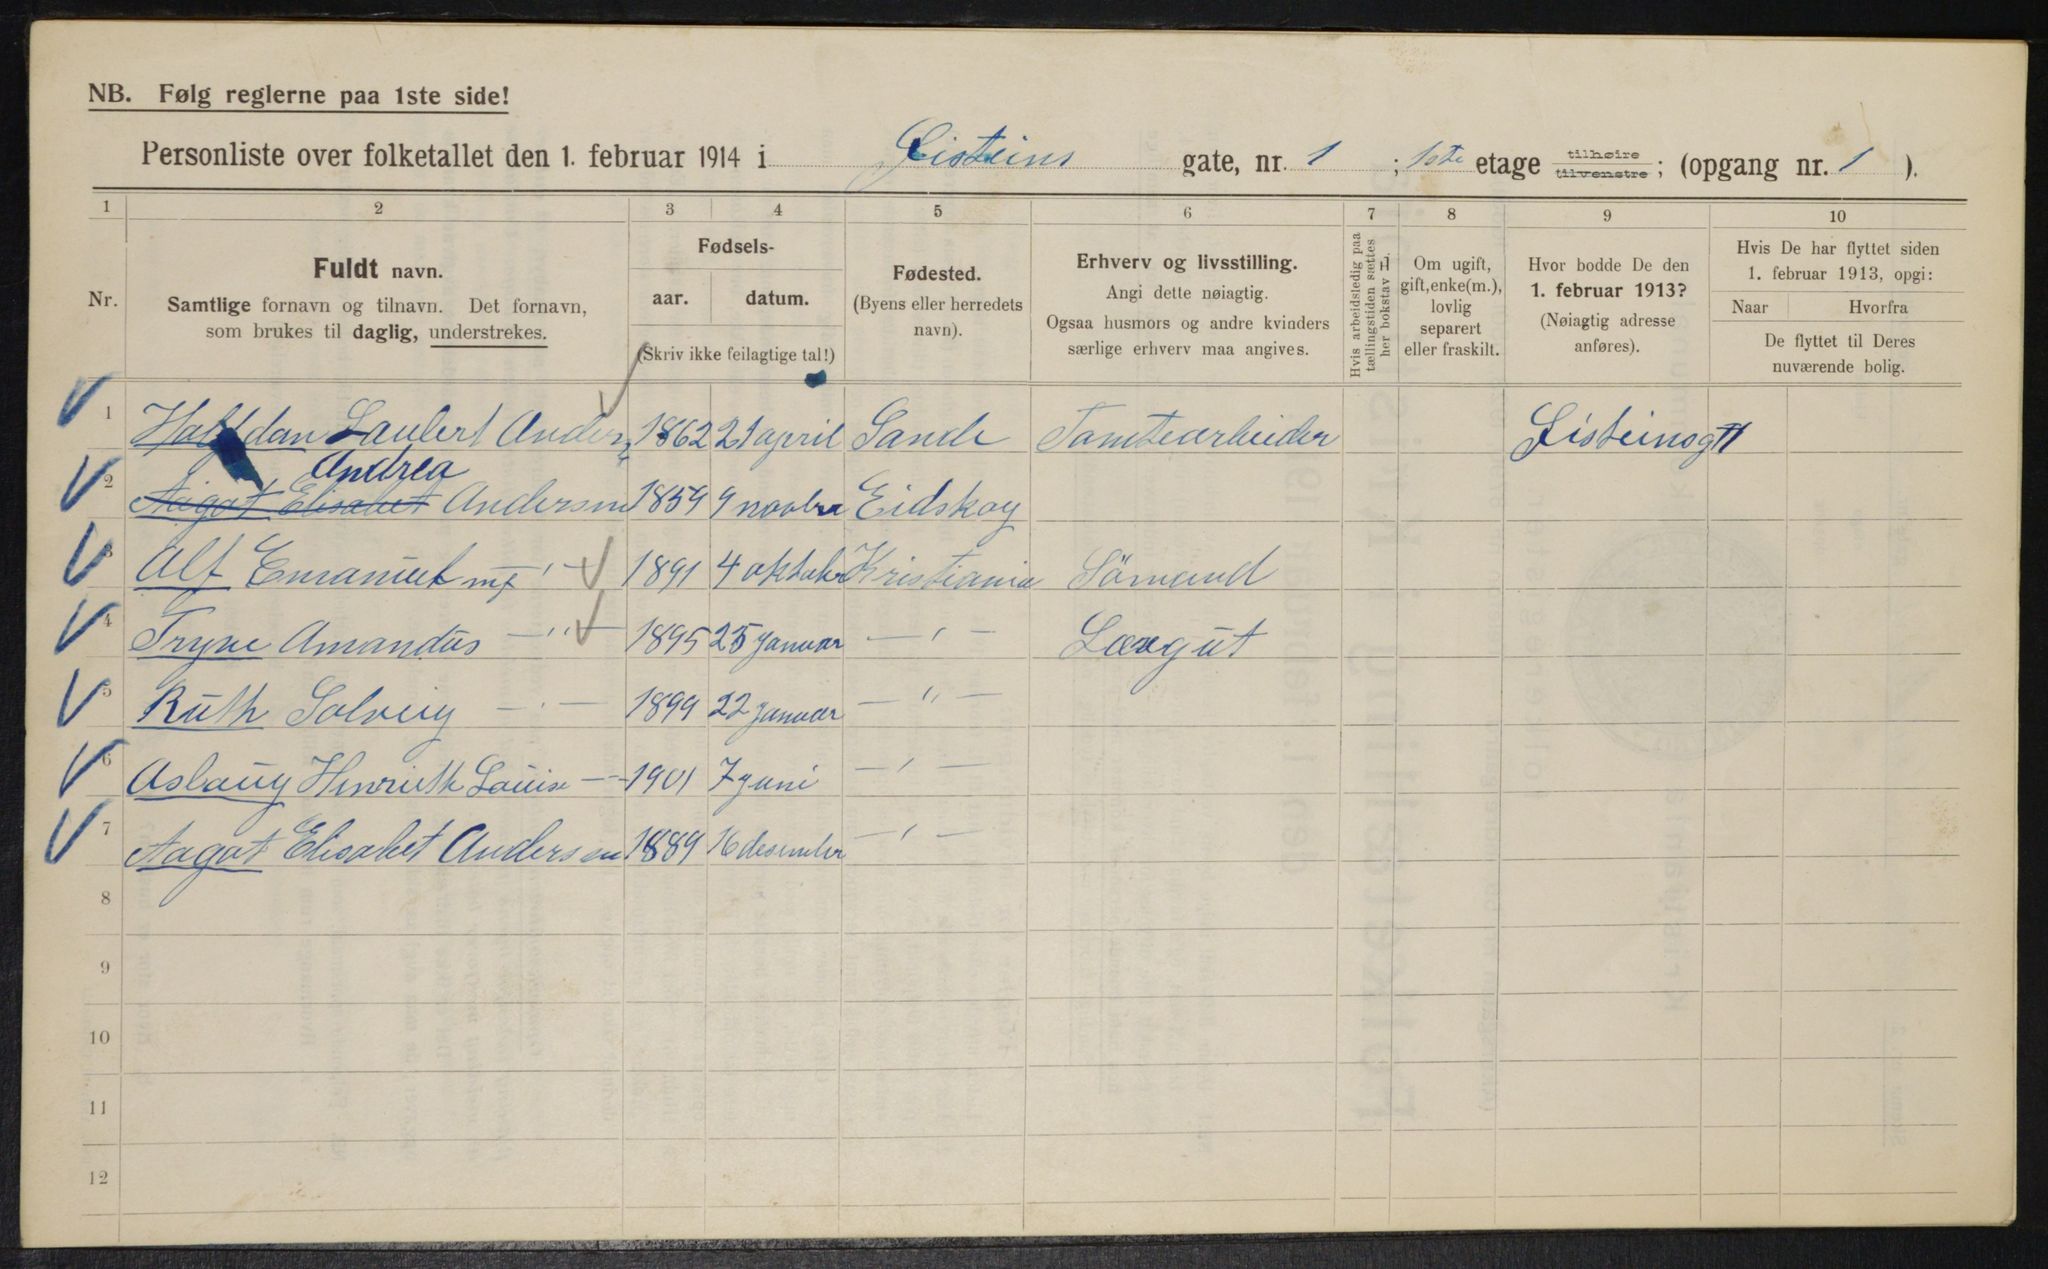 NB. Følg reglerne paa 1ste side!
Personliste over folketallet den 1. februar 1914 i Eisteins gate, nr. 1 ; 1ste etage tilhøire tilvenstre ; (opgang nr. 1 ).
1 2 3 4 5 6 7 8 9 10
Nr.
Fuldt navn.
Samtlige fornavn og tilnavn. Det fornavn,
som brukes til daglig, understrekes.
Fødsels-
aar. datum.
(Skriv ikke feilagtige tal!)
Fødested.
(Byens eller herredets
navn).
Erhverv og livsstilling.
Angi dette nøiagtig.
Ogsaa husmors og andre kvinders
særlige erhverv maa angives.
Hvis arbeidsledig paa
tællingstiden sættes
her bokstav l.
Om ugift,
gift, enke(m.),
lovlig
separert
eller fraskilt.
Hvor bodde De den
1. februar 1913?
(Nøiagtig adresse
anføres).
Hvis De har flyttet siden
1. februar 1913, opgi:
Naar Hvorfra
De flyttet til Deres
nuværende bolig.
1 Halfdan Laubert Anders 1862 21 april Sande Tomtearbeider Eisteinsgt 1
Andrea
2 Aagot Elisabet Andersen 1859 9 novbr Eidskog
3 Alf Emanuel " 1891 4 oktober Kristiania Sömand
4 Tryve Amandus — " — 1895 25 januar — " — Lærgut
5 Ruth Solveig — " — 1899 22 januar — " —
6 Aslaug Henriette Louise — " — 1901 7 juni — " —
7 Aagot Elisabet Andersen 1889 16 desember — " —
8
9
10
11
12